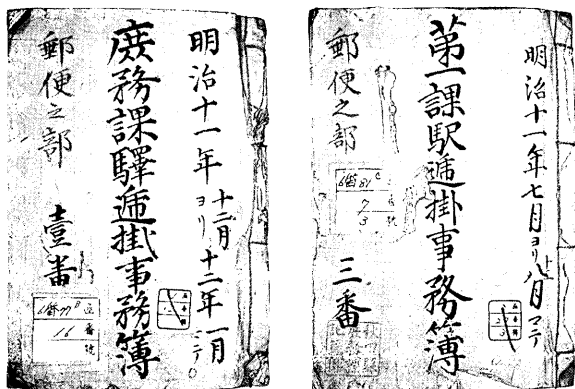 明治十一年七月ヨリ八月マテ
第一課駅逓掛事務簿
郵便之部
三番
明治十一年十二月ヨリ十二年一月マテ
庶務課驛逓掛事務簿
郵便之部
壹番
16